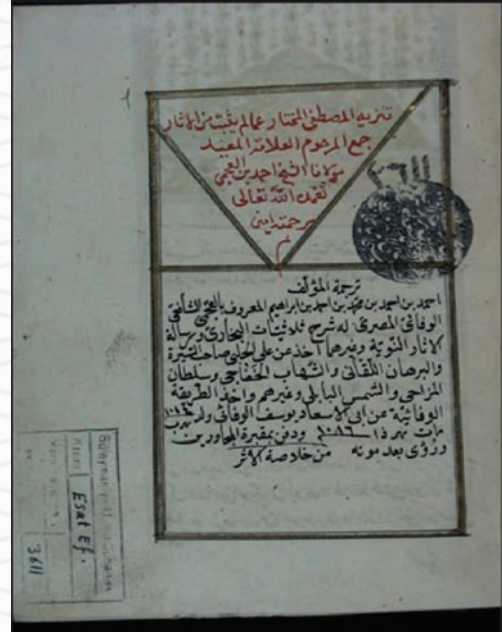 تنزيه المصطفى المختار عما لم يثبت من الآثار
جمع المرحوم العلامة المفيد
مولانا الشيخ احمد بن العجمي
تغمده الله تعالى
برحمته امين
م
ترجمة المؤلف
احمد بن احمد بن محمد بن احمد بن ابراهيم المعروف بالعجمي الشافعي
الوفائي المصري له شرح ثلاثيات البخاري ورسالة
الاثار النبوية وغيرهما اخذ عن علي الحلبي صاحب السيرة
والبرهان اللقاني والشهاب الخفاجي وسلطان
المزاحي والشمس البابلي وغيرهم واخذ الطريقة
الوفائية عن ابي الاسعاد يوسف الوفائي ولد
مات ١٠٨٦ ودفن بمقبرة المجاورين
ورؤى بعد موته من خلاصة الاثر
Süleymaniye U. Kütüphanesi
Esat Ef.
3611